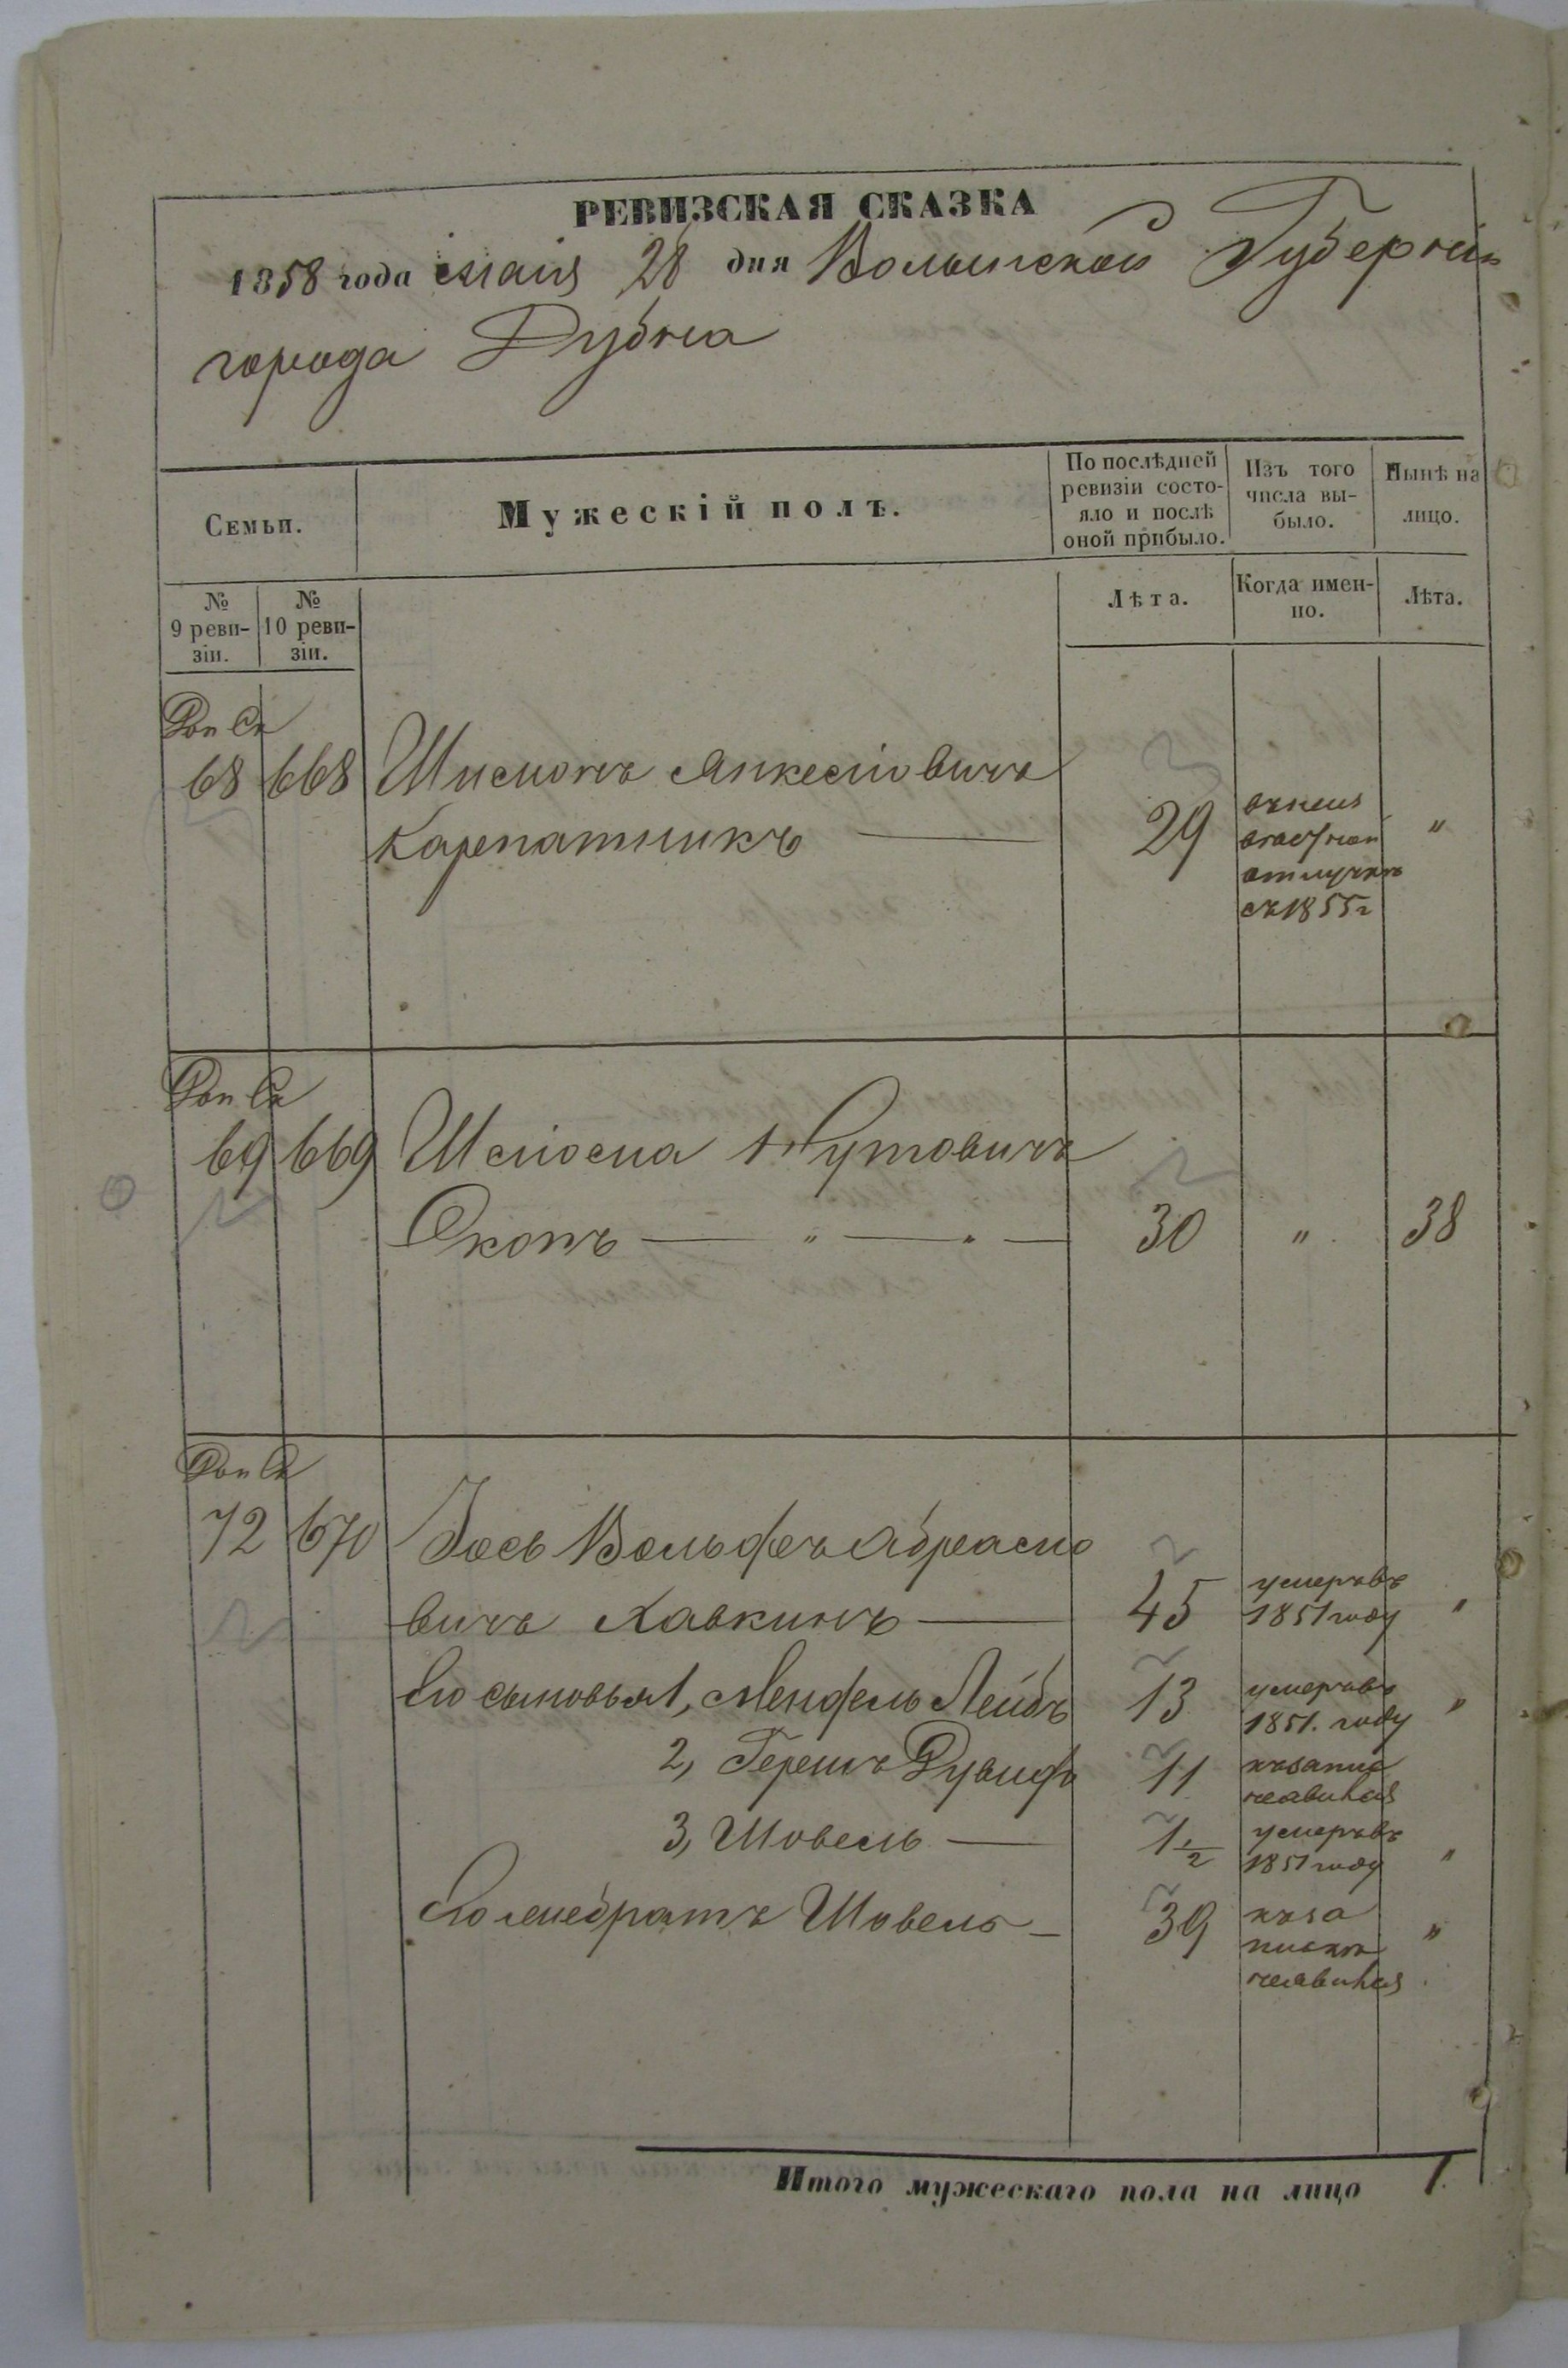 РЕВИЗСКАЯ СКАЗКА
1858 года мая 28 дня Волынской Губерніи
города Дубна
Семьи.
Мужескій полъ.
По послѣдней ревизіи состо-
яло и послѣ
оной прибыло.
Изъ того
числа вы-
было.
Нынѣ на
лицо.
№
9 реви-
зіи.
№
10 реви-
зіи.
Лѣта.
Когда имен-
но.
Лѣта.
68 668 Шимонъ Янкелiовичъ
Карпатникъ 29 "
отлучкѣ
съ 1855г
69 669 Шлiома Нутовичъ
Окопъ " " 30 " 38
72 670 Iось Вольфъ Абрамо
вичъ Хавкинъ 45 умеръ въ 1851 году "
Его сыновья 1, Мендель Лейбъ 13 умеръ въ 1851. году "
2, Гершъ Дувидъ 11
неявился
3, Шовель 1 1/2 умеръ въ 1851 году "
Шовель 39 "
неявился
Итого мужескаго пола на лицо 1.